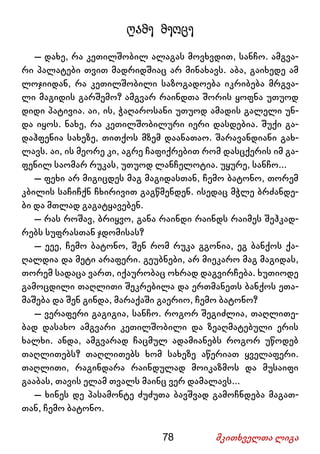 ღამე მეოცე
— დახე, რა კეთილშობილ ალაგას მოვხვდით, სანჩო. ამგვა-
რი პალატები თვით მადრიდშიაც არ მინახავს. აბა, გაიხედე ამ
ლოჯიიდან, რა კეთილშობილი საზოგადოება იკრიბება მრგვა-
ლი მაგიდის გარშემო? ამგვარ რაინდთა შორის ყოფნა უთუოდ
დიდი პატივია. აი, ის, ჭაღაროსანი უთუოდ ამადის გალელი უნ-
და იყოს. ნახე, რა კეთილშობილური იერი დასდებია. შუქი გა-
დაჰფენია სახეზე, თითქოს მზემ დაანათაო. შარავანდიანი გახ-
ლავს. აი, ის მეორე კი, აგრე ჩაფიქრებით რომ დასცქერის იმ გა-
ფენილ საომარ რუკას, უთუოდ ლანჩელოტია. უყურე, სანჩო...
— ფეხი არ მიგიცდეს მაგ მაგიდასთან, ჩემო ბატონო, თორემ
კბილის საჩიჩქნ ჩხირივით გაგწმენდენ. ისედაც მჭლე ბრძანდე-
ბი და მთლად გაგატყავებენ.
— რას როშავ, ბრიყვო, განა რაინდი რაინდს რაიმეს შეჰკად-
რებს სუფრასთან ჯდომისას?
— ეეე, ჩემო ბატონო, შენ რომ რუკა გგონია, ეგ ბანქოს ქა-
ღალდია და მეტი არაფერი. გეუბნები, არ მიეკარო მაგ მაგიდას,
თორემ სადაცა ვართ, იქაურობაც ოხრად დაგვირჩება. ხუთიოდე
გამოცდილი თაღლითი შეკრებილა და ერთმანეთს ბანქოს ეთა-
მაშება და შენ გინდა, მარაქაში გაერიო, ჩემო ბატონო?
— ვერაფერი გაგიგია, სანჩო. როგორ შეგიძლია, თაღლითე-
ბად დასახო ამგვარი კეთილშობილი და ზეაღმატებული ერის
ხალხი. ანდა, ამგვარად ჩაცმულ ადამიანებს როგორ უწოდებ
თაღლითებს? თაღლითებს ხომ სახეზე აწერიათ ყველაფერი.
თაღლითი, რაგინდარა რაინდულად მოიკაზმოს და მუსაიფი
გააბას, თავის ელამ თვალს მაინც ვერ დამალავს...
— ხინეს დე პასამონტე ძუძუთა ბავშვად გამოჩნდება მაგათ-
თან, ჩემო ბატონო.
78 მკითხველთა ლიგა